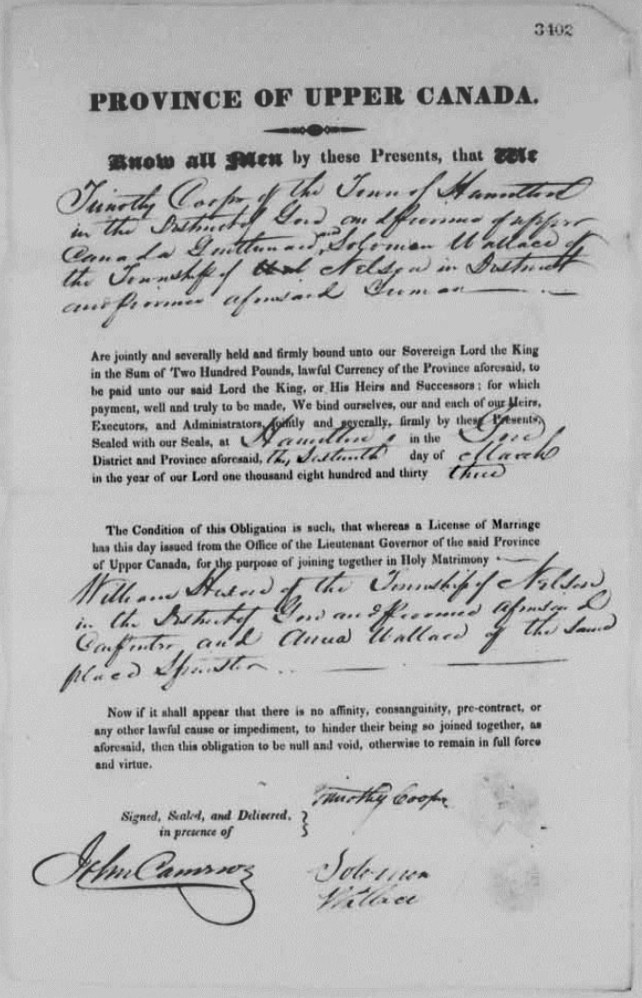 3402
PROVINCE OF UPPER CANADA.
Know all Men by these Presents, that We
Timothy Cooper of the Town of Hamilton
in the District of Gore and Province of upper
Canada and Solomon Wallace of
the Township of Nelson in District
and Province aforesaid Yeoman
Are jointly and severally held and firmly bound unto our Sovereign Lord the King
in the Sum of Two Hundred Pounds, lawful Currency of the Province aforesaid, to
be paid unto our said Lord the King, or His Heirs and Successors; for which
payment, well and truly to be made, We bind ourselves, our and each of our Heirs,
Executors, and Administrators, jointly and severally, firmly by these Presents,
Sealed with our Seals, at Hamilton in the Gore
District and Province aforesaid, this Sixteenth day of March
in the year of our Lord one thousand eight hundred and thirty three
The Condition of this Obligation is such, that whereas a License of Marriage
has this day issued from the Office of the Lieutenant Governor of the said Province
of Upper Canada, for the purpose of joining together in Holy Matrimony
William of the Township of Nelson
in the District of Gore and Province aforesaid
Carpenter and Anna Wallace of the same
place Spinster
Now if it shall appear that there is no affinity, consanguinity, pre-contract, or
any other lawful cause or impediment, to hinder their being so joined together, as
aforesaid, then this obligation to be null and void, otherwise to remain in full force
and virtue.
Timothy Cooper
Signed, Sealed, and Delivered,
in presence of
John Cameron
Solomon
Wallace